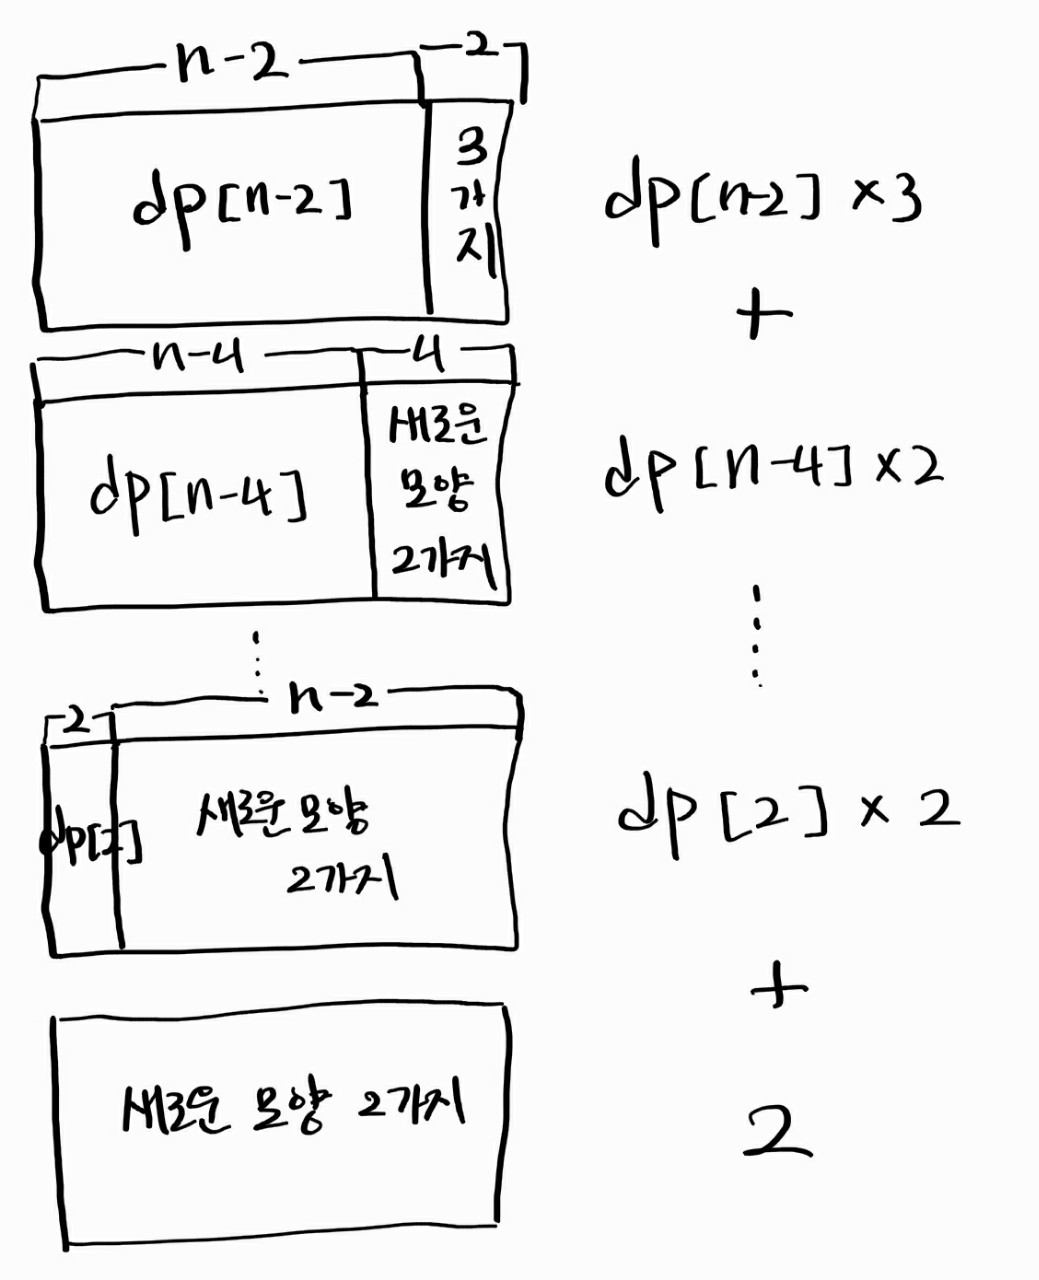 n-2 2
dp[n-2]
3
가
지
dp[n-2] ×3
+
n-4 4
dp[n-4]
새로운
모양
2가지
dp[n-4] ×2
2 n-2
dp[2]
새로운 모양
2가지
dp[2] × 2
+
새로운 모양 2가지
2